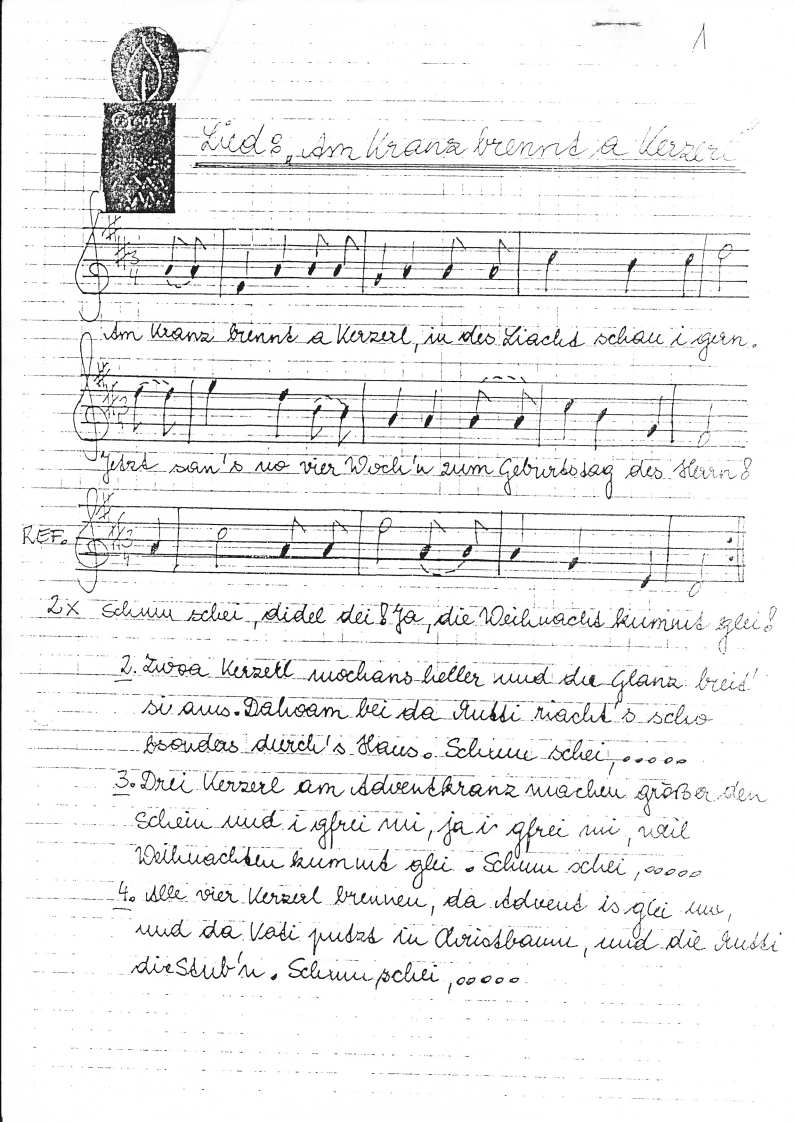 1
Lied: „Am Kranz brennt a Kerzerl"
Am Kranz brennt a Kerzerl, in des Liacht schau i gern.
Jetzt san's no vier Woch'n zum Geburtstag des Herrn!
REF.
2x Schum schei, didel dei! Ja, die Weihnacht kummt glei!
2. Zwoa Kerzerl mochans heller und die Glanz breit'
si aus. Dahoam bei da Mutti riacht's scho
bsonders durch's Haus. Schum schei, .....
3. Drei Kerzerl am Adventkranz machen größer den
Schein und i gfrei mi, ja i gfrei mi, weil
Weihnachten kummt glei. Schum schei, .....
4. Alle vier Kerzerl brennen, da Advent is glei um,
und da Vati putzt in Christbaum, und die Mutti
die Stub'n. Schum schei, .....